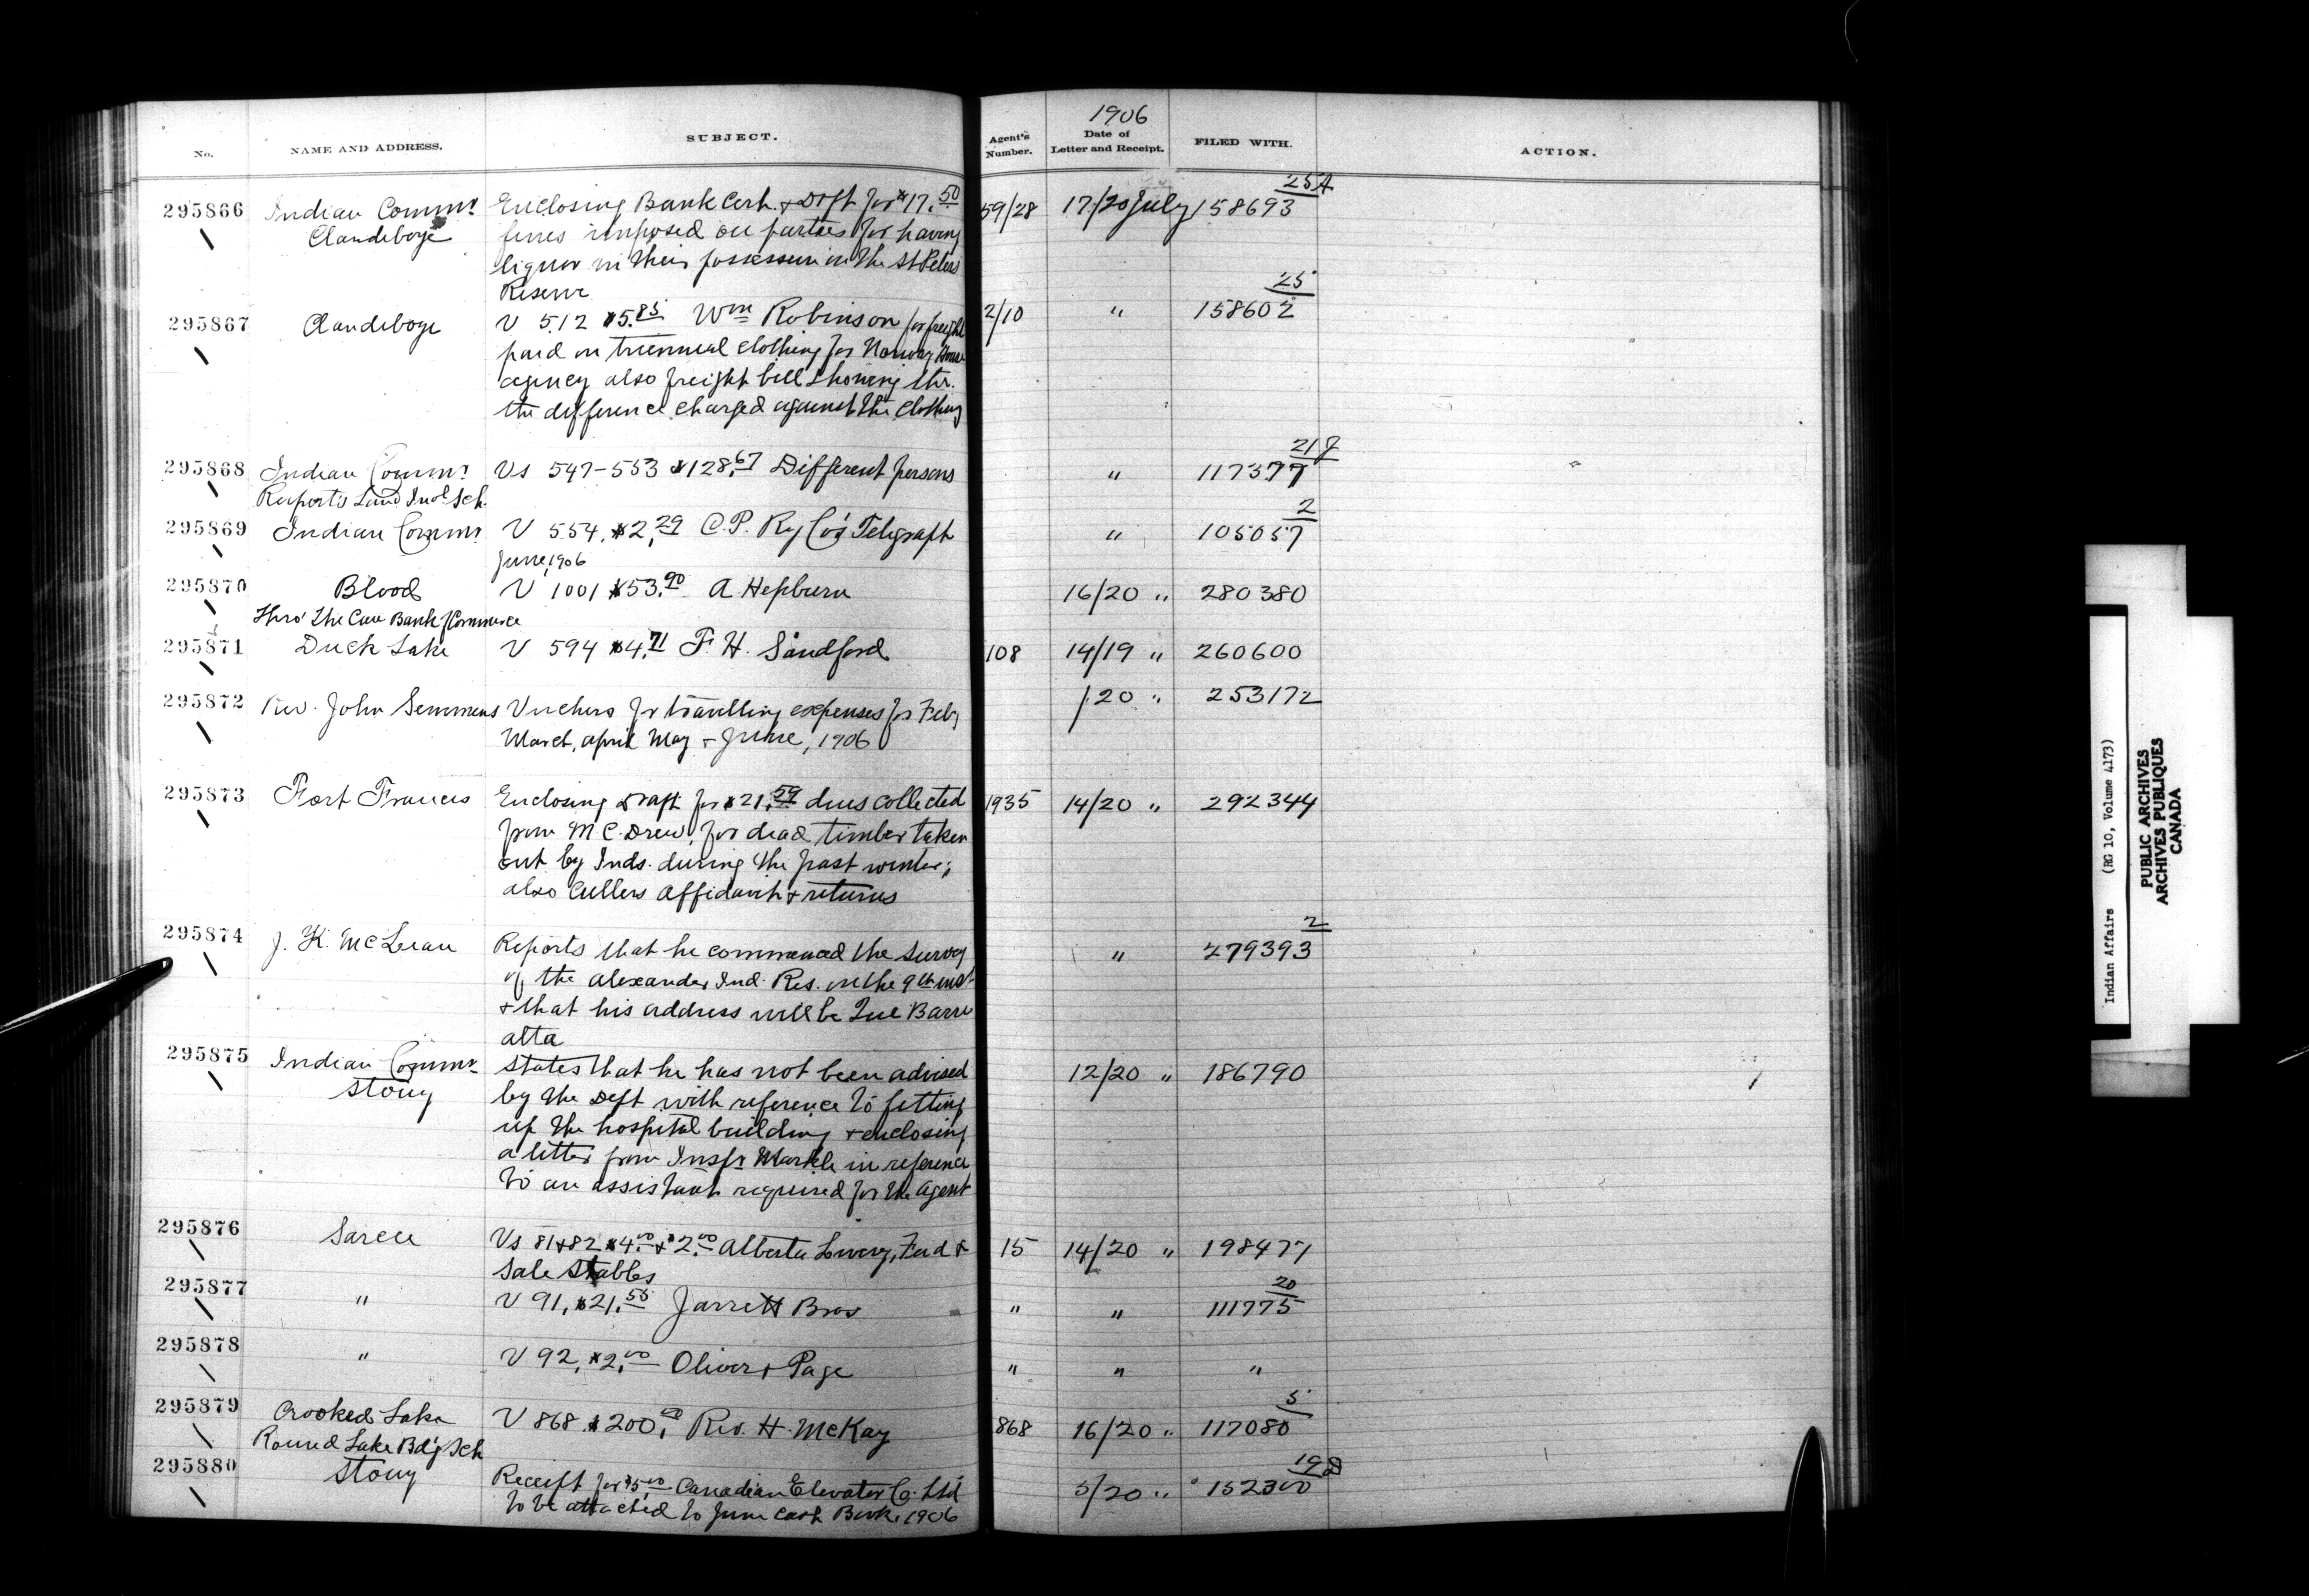 No. NAME AND ADDRESS. SUBJECT. Agent's Number. 1906 Date of Letter and Receipt. FILED WITH. ACTION.
295866 Indian Commr Enclosing Bank Cert. & Dft for $17.50 59/28 17/20 July 158693 25A
Clandeboye fines imposed on parties for having
liquor in their possession in the St Peters
Reserve
295867 Clandeboye V 512 $5.85 Wm Robinson for freight 2/10 " 158602 25
paid on triennial clothing for Norway House
agency also freight bill showing thr.
the difference charged against the clothing
295868 Indian Commr Vs 547-553 $128.67 Different persons " 117377 21J
Ruperts Land Indl Sch.
295869 Indian Commr V 554, $2.29 C.P. Ry Co's Telegraph " 105057 2
June, 1906
295870 Blood V 1001 $53.90 A. Hepburn 16/20 " 280380
Thro' the Can Bank of Commerce
295871 Duck Lake V 594 $4.71 F. H. Sandford 108 14/19 " 260600
295872 Rev. John Semmens Vuchers for travelling expenses for Feby /20 " 253172
March, April May & June, 1906
295873 Fort Frances Enclosing Draft for $21.59 dues collected 1935 14/20 " 292344
from M C. Drew, for dead timber taken
out by Inds. during the past winter;
also Cullers affidavit & returns
295874 J. K. McLean Reports that he commenced the survey " 279393 2
of the Alexander Ind. Res. on the 9th inst
& that his address will be Lac Barre
alta
295875 Indian Commr States that he has not been advised 12/20 " 186790
Stony by the Dept with reference to fitting
up the hospital building & enclosing
a letter from Inspr Markle in reference
to an assistant required for the agent
295876 Sarcee Vs 81&82 $4.00 & $2.00 Alberta Livery, Feed & 15 14/20 " 198477
Sale Stables
295877 " V 91, $21.55 Jarrett Bros " " 111775 20
295878 " V 92, $2.00 Oliver & Page " " "
295879 Crooked Lake V 868 $200.00 Rev. H. McKay 868 16/20 " 117080 5
Round Lake Bd'g Sch
295880 Stony Receipt for $5.00 Canadian Elevator Co. Ltd 5/20 " 152300 19D
to be attached to June Cash Book, 1906
Indian Affairs (RG 10, Volume 4173)
PUBLIC ARCHIVES
ARCHIVES PUBLIQUES
CANADA